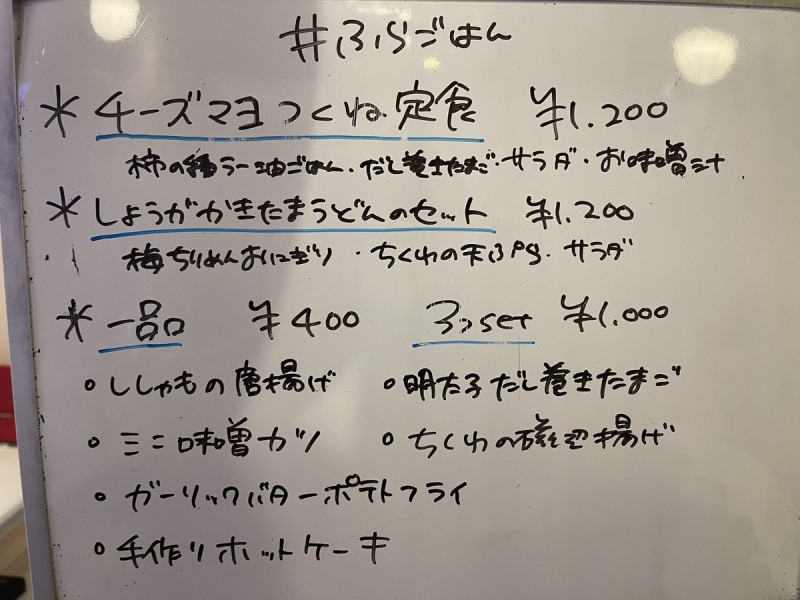 #ふらごはん
* チーズマヨつくね定食 ¥1.200
柿の種ラー油ごはん・だし巻きたまご・サラダ・お味噌汁
* しょうがかきたまうどんのセット ¥1.200
梅ちりめんおにぎり・ちくわの天ぷら・サラダ
* 一品 ¥400 3つset ¥1.000
○ ししゃもの唐揚げ ○ 明太子だし巻きたまご
○ ミニ味噌カツ ○ ちくわの磯辺揚げ
○ ガーリックバターポテトフライ
○ 手作りホットケーキ